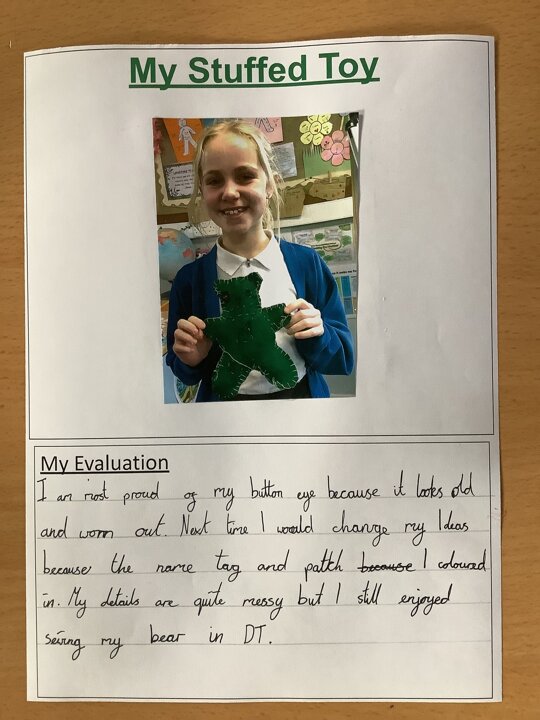 My Stuffed Toy
My Evaluation
I am most proud of my button eye because it looks old
and worn out. Next time I would change my Ideas
because the name tag and patch because I coloured
in. My details are quite messy but I still enjoyed
sewing my bear in DT.